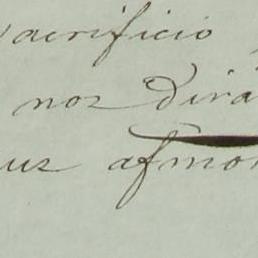 sacrificio
nos dira
us afmo